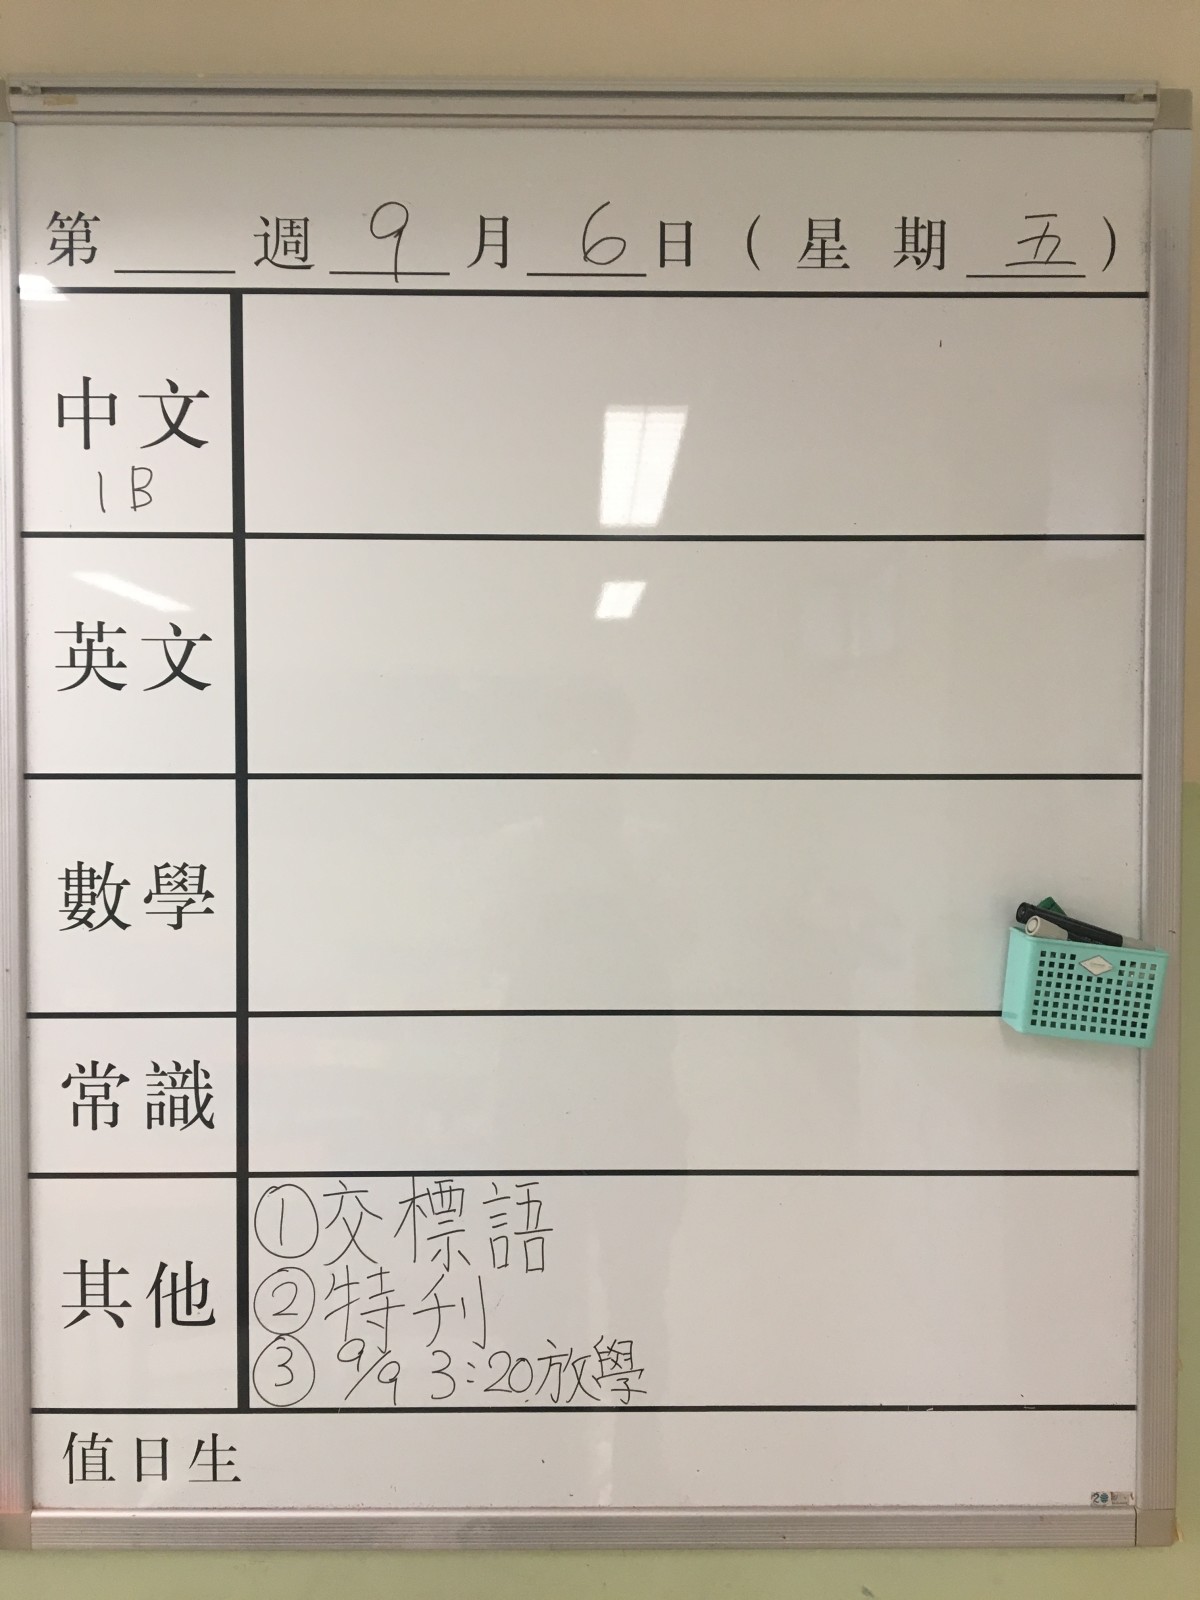 第 週 9 月 6 日 ( 星 期 五 )
中文
1B
英文
數學
常識
其他
① 交標語
② 特刋
③ 9/9 3:20 放學
值日生